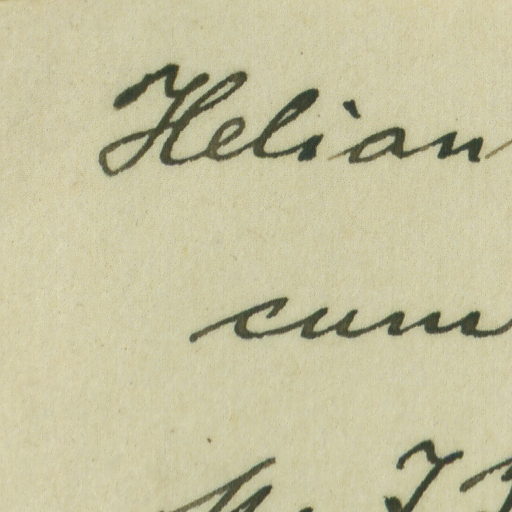 Helian
cum